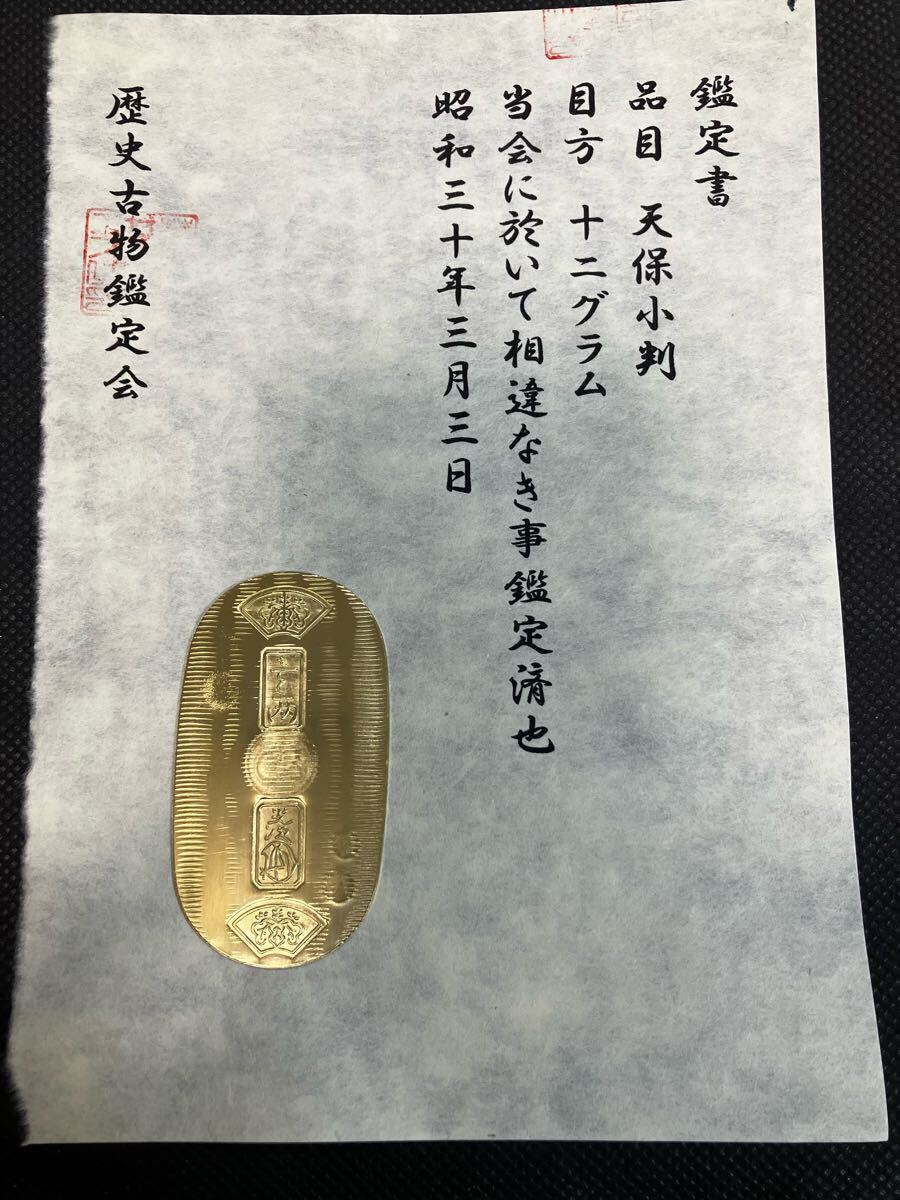 鑑定書
品目 天保小判
目方 十二グラム
当会に於いて相違なき事鑑定済也
昭和三十年三月三日
歴史古物鑑定会